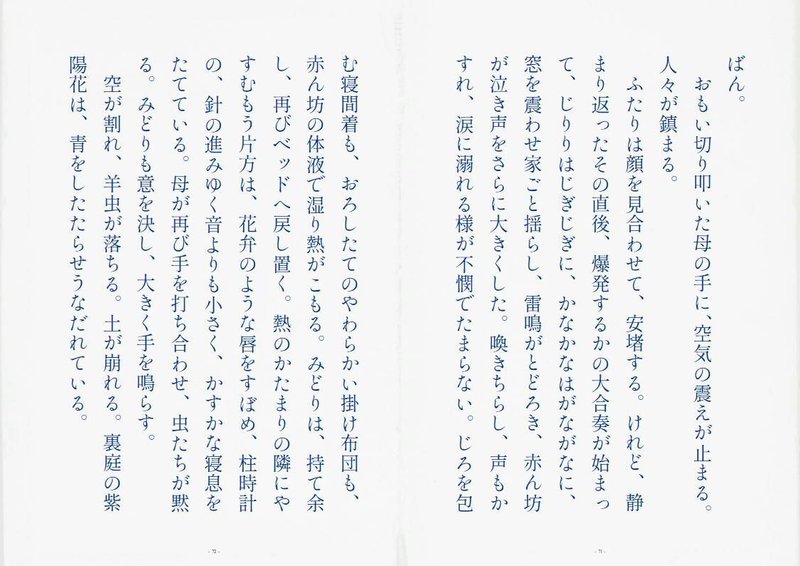 ばん。
おもい切り叩いた母の手に、空気の震えが止まる。
人々が鎮まる。
ふたりは顔を見合わせて、安堵する。けれど、静
まり返ったその直後、爆発するかの大合奏が始まっ
て、じりりはじぎじぎに、かなかなはがながなに、
窓を震わせ家ごと揺らし、雷鳴がとどろき、赤ん坊
が泣き声をさらに大きくした。喚きちらし、声もか
すれ、涙に溺れる様が不憫でたまらない。じろを包
- 71 -
む寝間着も、おろしたてのやわらかい掛け布団も、
赤ん坊の体液で湿り熱がこもる。みどりは、持て余
し、再びベッドへ戻し置く。熱のかたまりの隣にや
すむもう片方は、花弁のような唇をすぼめ、柱時計
の、針の進みゆく音よりも小さく、かすかな寝息を
たてている。母が再び手を打ち合わせ、虫たちが黙
る。みどりも意を決し、大きく手を鳴らす。
空が割れ、羊虫が落ちる。土が崩れる。裏庭の紫
陽花は、青をしたたらせうなだれている。
- 72 -